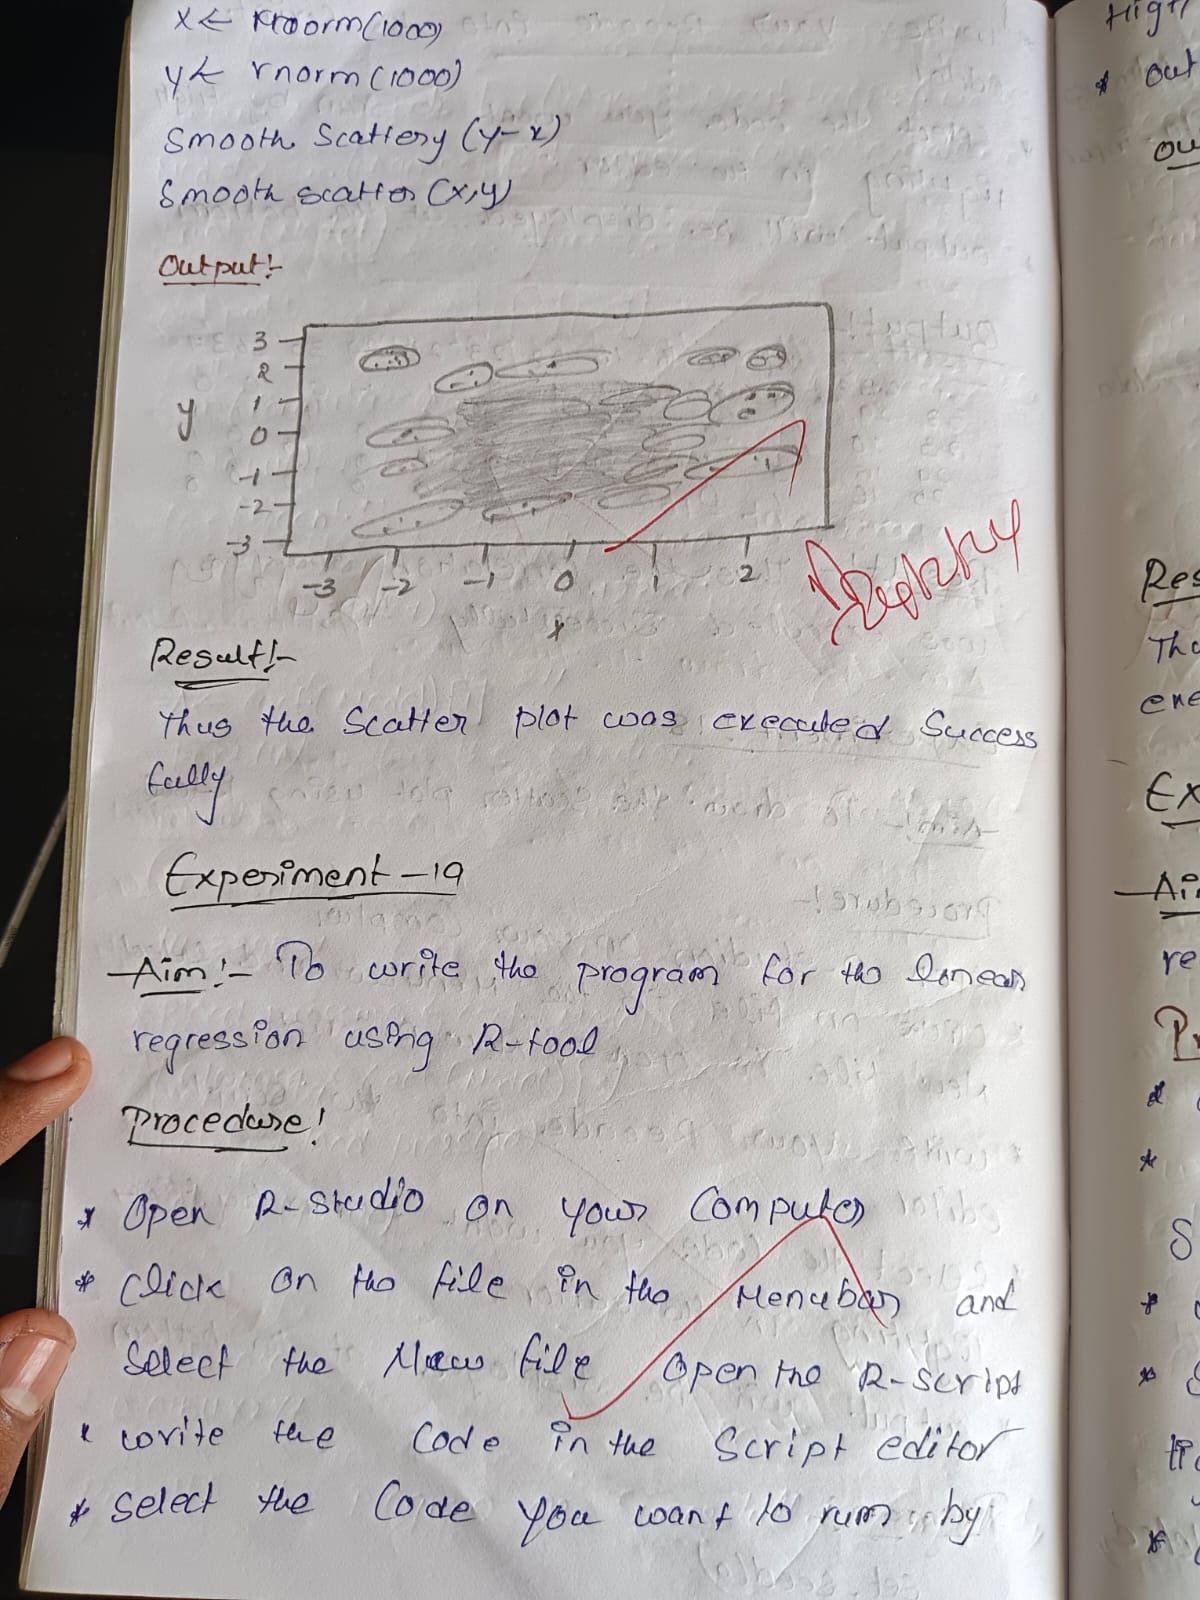 x ← rnorm(1000)
y ← rnorm(1000)
Smooth Scattery (y-x)
Smooth scatter (x,y)
Output:-
3
2
1
0
-1
-2
-3
y
-3 -2 -1 0 1 2
x
Result:-
Thus the Scatter plot was executed Success
fully
Experiment -19
Aim:- To write the program for the linear
regression using R-tool
Procedure:
* Open R-Studio on your Computer
* Click on the file in the Menubar and
Select the New file Open the R-script
* write the Code in the Script editor
* Select the Code you want to run by
High
* out
ou
Res
Tho
exe
Ex
Aim
re
Pr
*
*
S
*
*
*